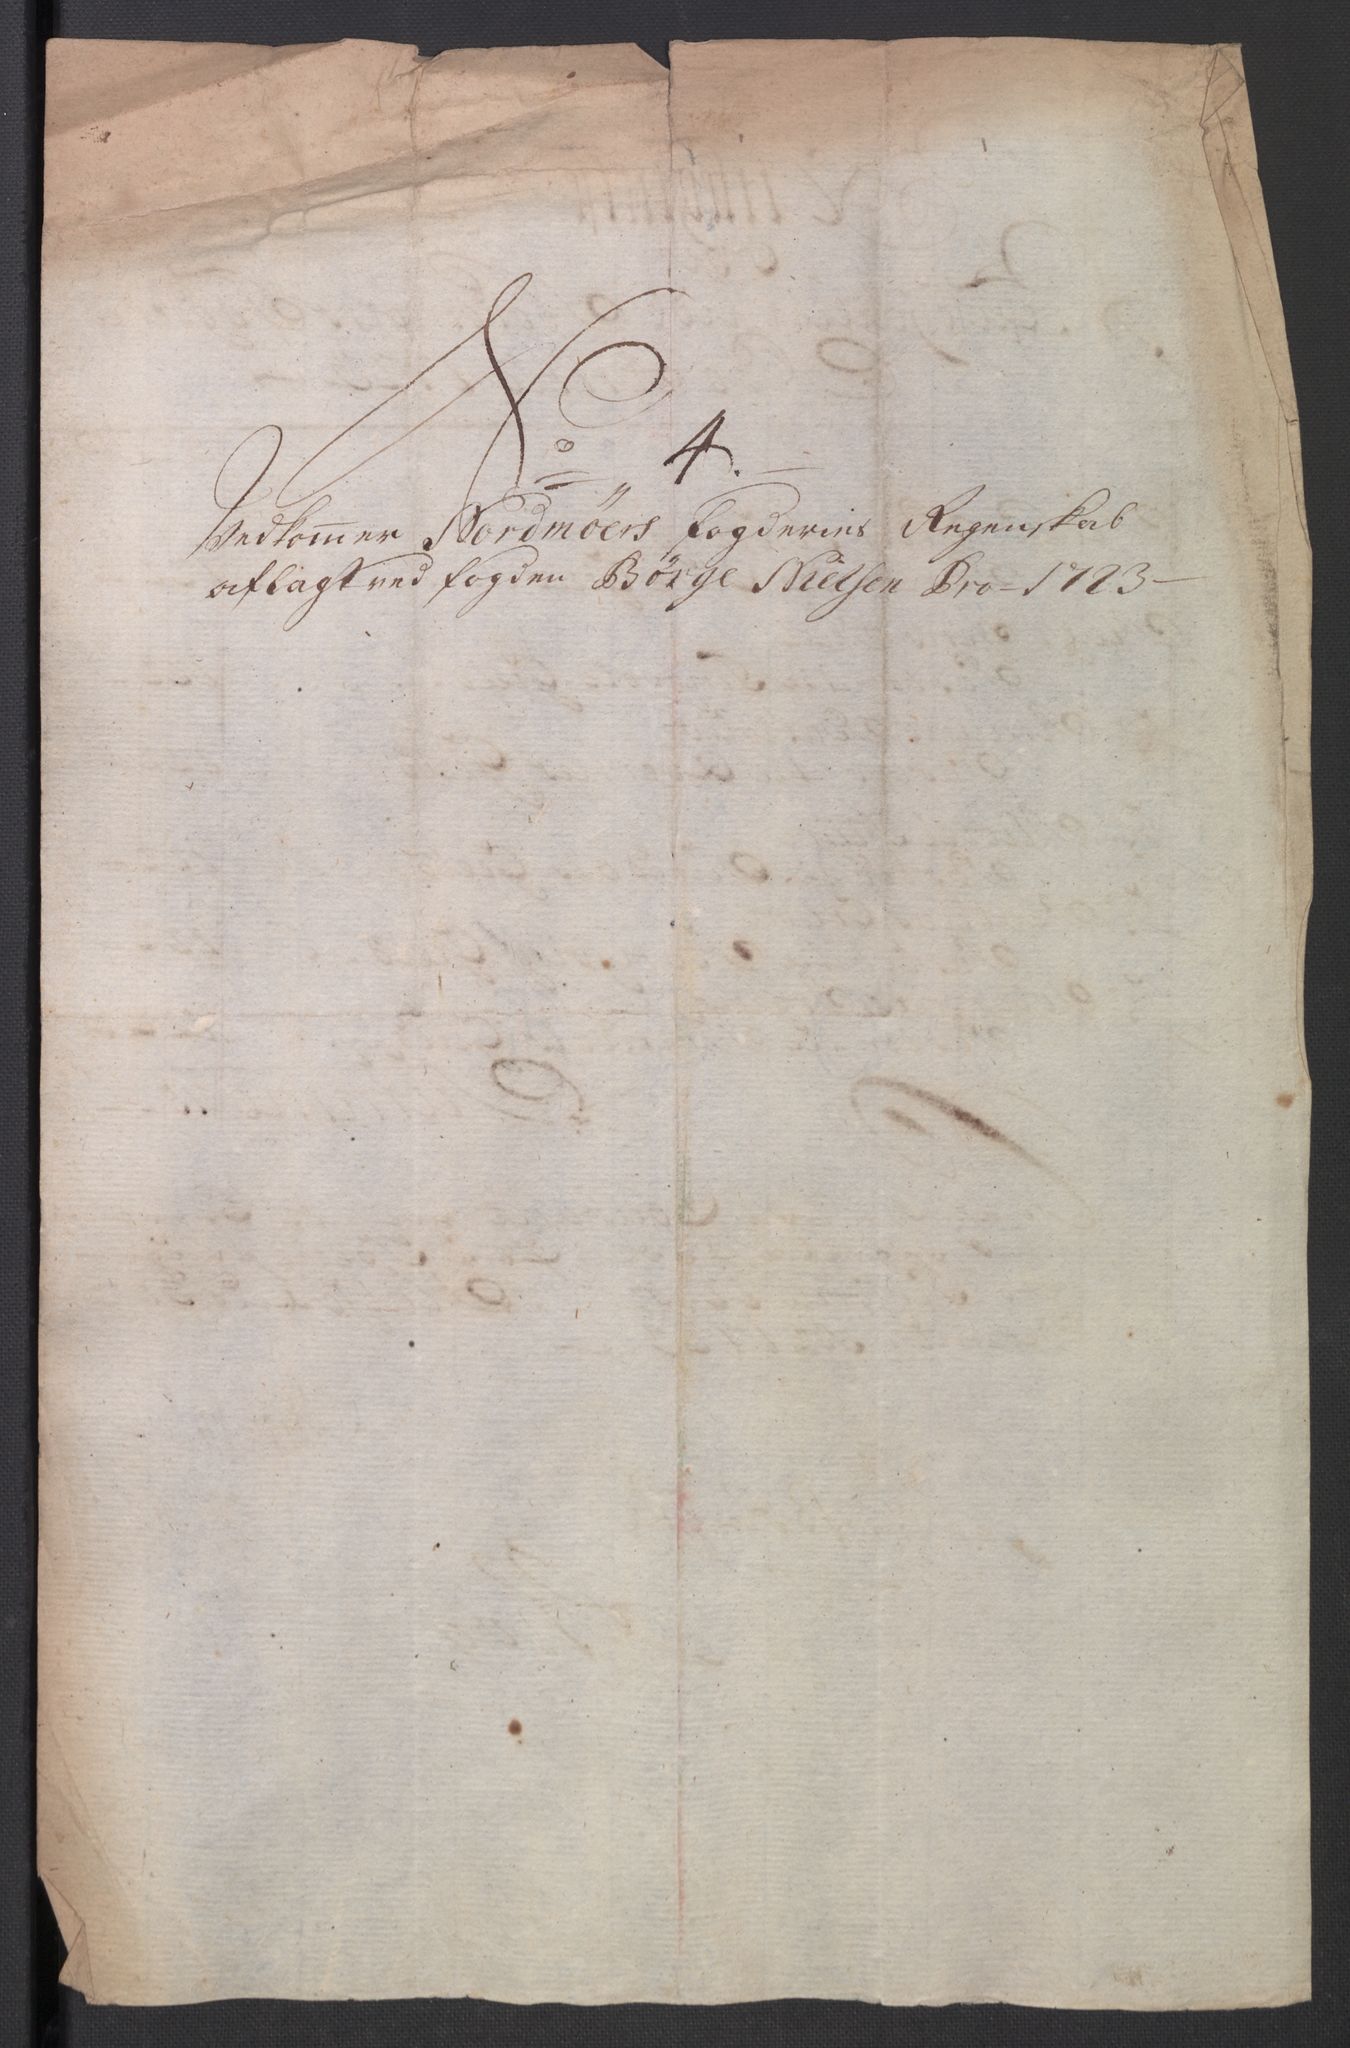 No 4.
Vedkom̅er Nordmöers fogderies Regenskab
aflagt ved fogden Börge Nielsen Pro 1723